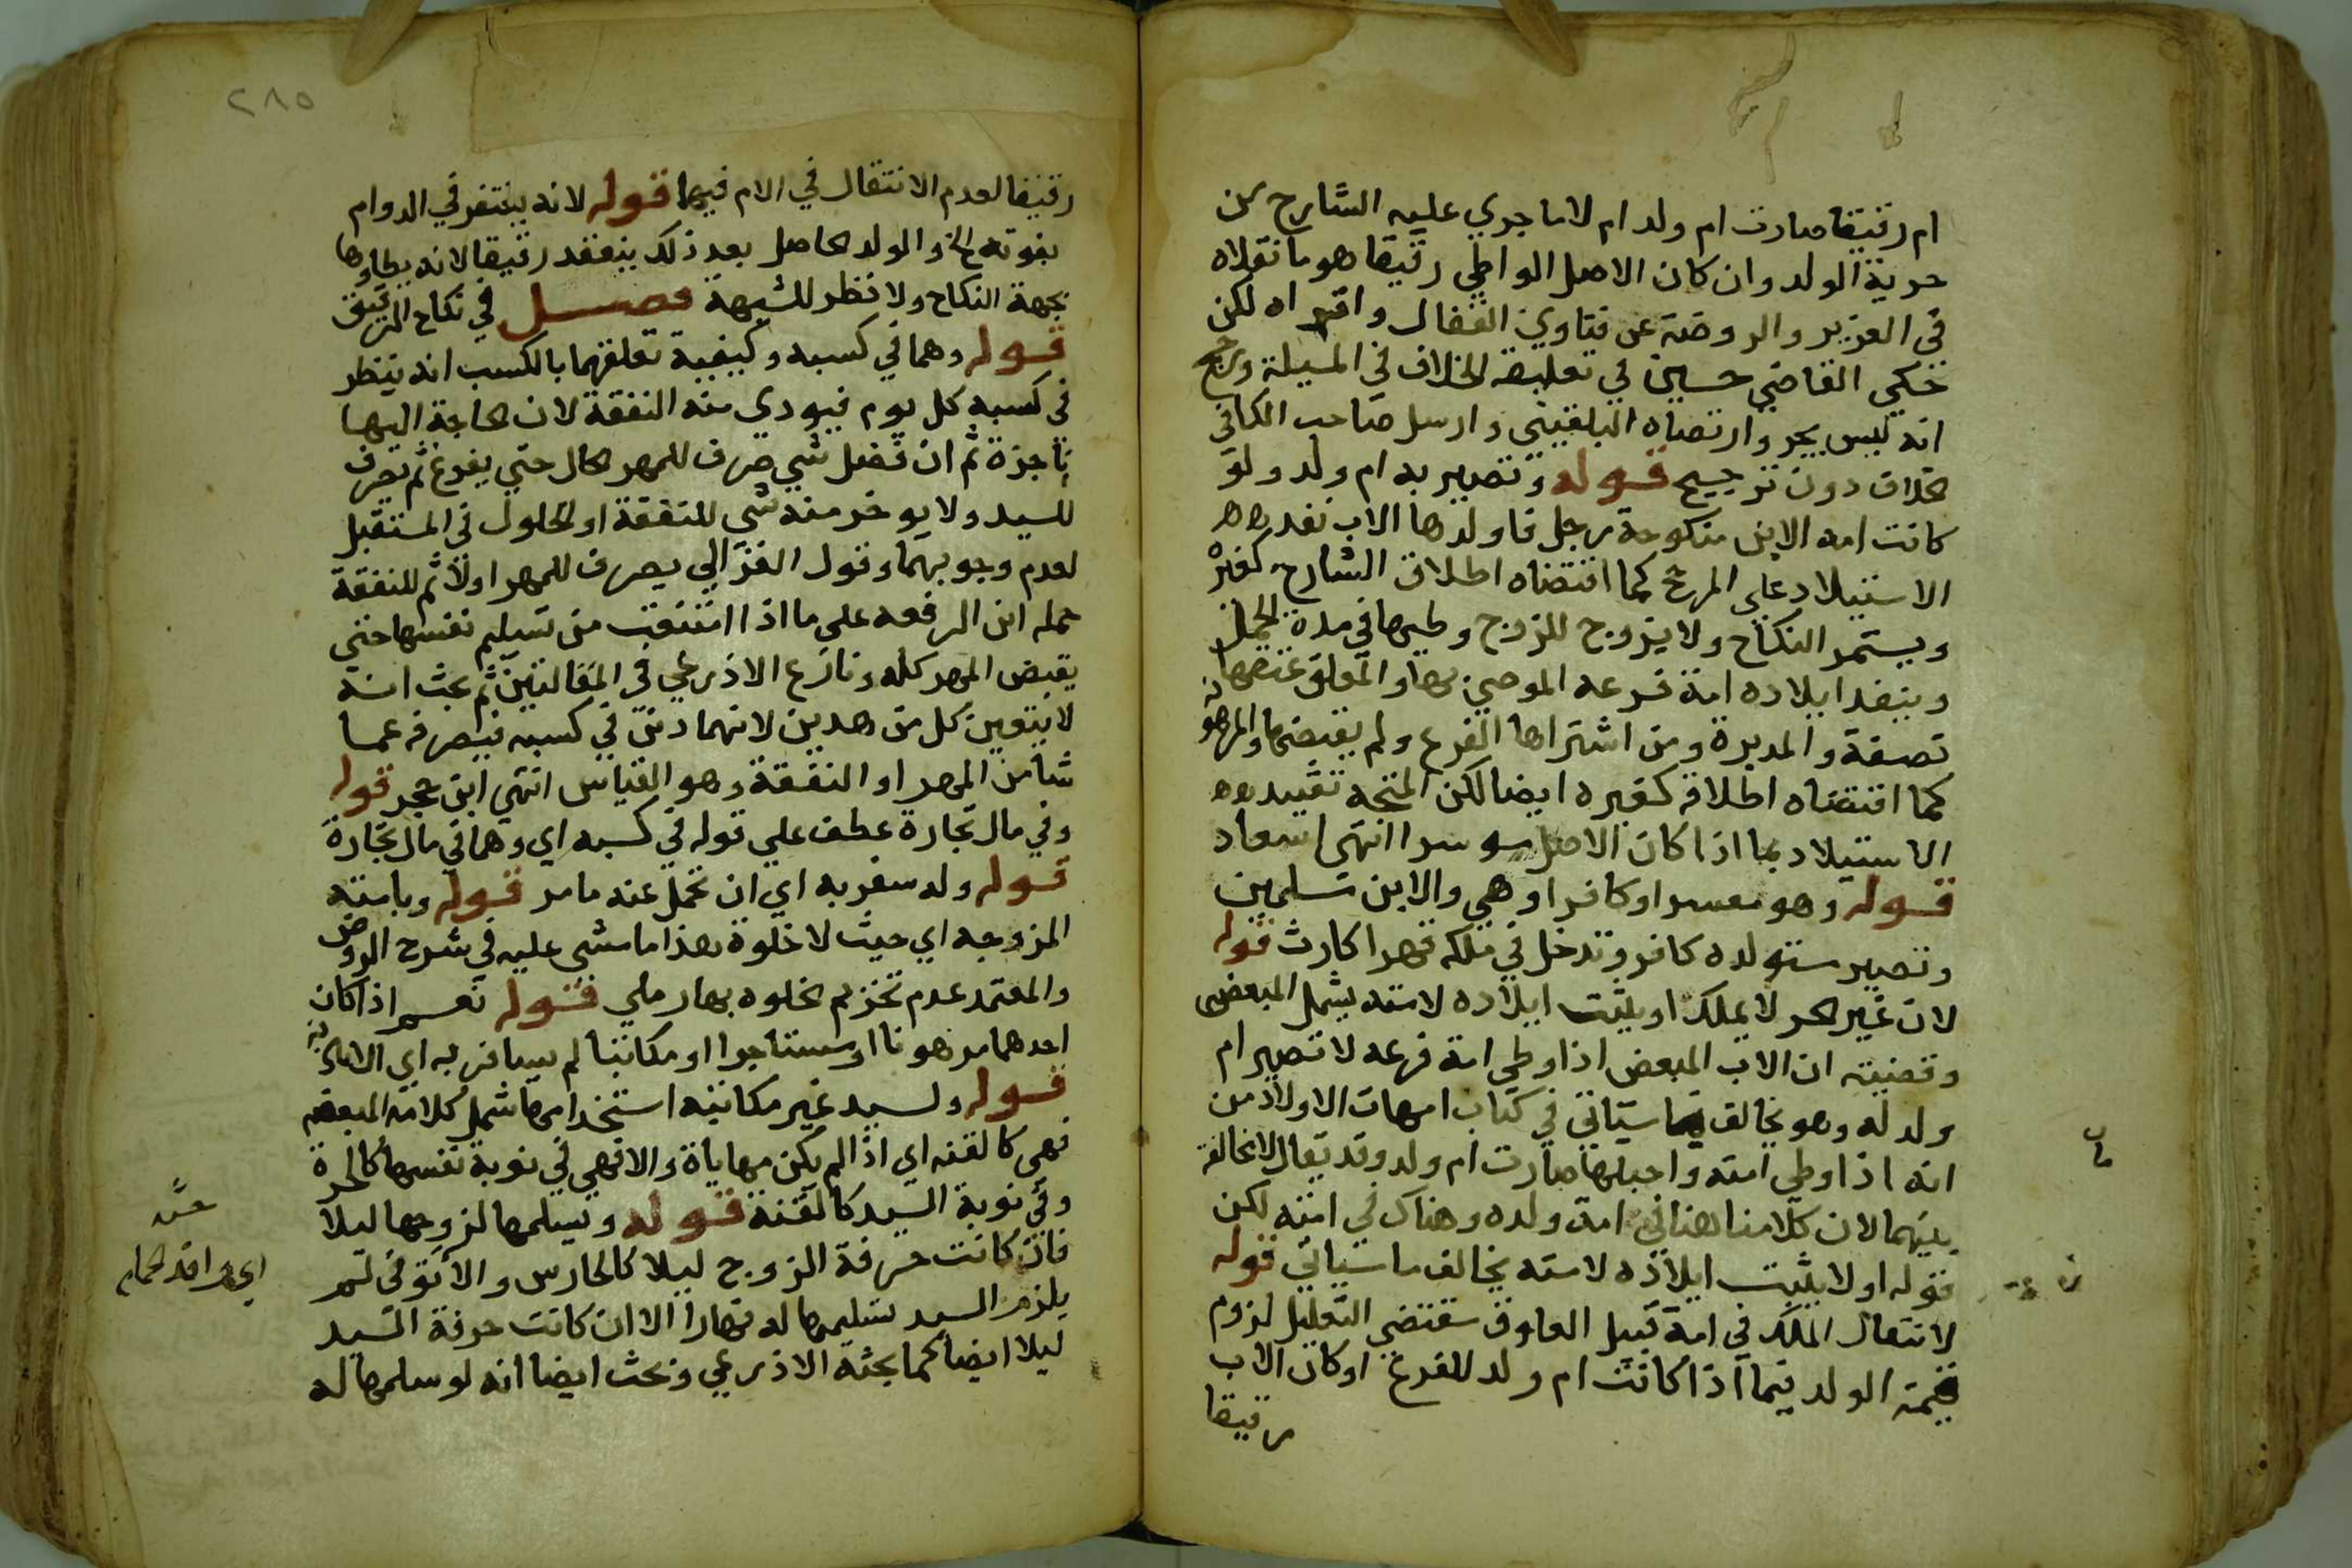 ام رقيقا صارت ام ولد ام لا ما جري عليه الشارح من
حرية الولد وان كان الاصل الواطي رقيقا هو ما نقلاه
في العزيز والروضة عن فتاوي القفال واقراه لكن
حكي القاضي حسين في تعليقه الخلاف في المسيلة ورجح
انه ليس بحر وارتضاه البلقيني وارسل صاحب الكافي
خلاف دون ترجيح قوله وتصير به ام ولد ولو
كانت امه الابن منكوحة رجل فاولدها الاب نفد
الاستيلاد علي المرجح كما اقتضاه اطلاق الشارح كغيره
ويستمر النكاح ولا يزوج للزوج وطيها في مدة الحمل
وينفد ايلاده امة فرعه الموصي بها والمعلق عتقها
بصفة والمدبرة ومن اشتراها الفرع ولم يقبضها والمرهونة
كما اقتضاه اطلاقه كغيره ايضا لكن المتجه تقييد
الاستيلاد بما اذا كان الاصل موسرا انتهي اسعاد
قوله وهو معسر او كافر او هي والابن مسلمين
وتصير مستولده كافر وتدخل في ملكه قهرا كارث قوله
لان غير الحر لا يملك او يثبت ايلاده لامته يشمل المبعض
وقضيته ان الاب المبعض اذا وطي امة فرعه لا تصير ام
ولد له وهو يخالف ما سياتي في كتاب امهات الاولاد من
انه اذا وطي امته واحبلها صارت ام ولد وقد يقال لا مخالفة
بينهما لان كلامنا هنا في امة ولده وهناك في امته لكن
قوله او لا يثبت ايلاده لامته يخالف ما سياتي قوله
لانتقال الملك في امة قبيل العلوق مقتضي التعليل لزوم
قيمة الولد فيما اذا كانت ام ولد للفرع او كان الاب
رقيقا
٢٨٥
رقيقا لعدم الانتقال في الام فيهما قوله لانه يغتفر في الدوام
بقوته الخ والولد الحاصل بعد ذلك ينعقد رقيقا لانه يطاوها
بجهة النكاح ولا نظر للشبهة فصل في نكاح الرقيق
قوله وهما في كسبه وكيفية تعلقهما بالكسب انه ينظر
في كسبه كل يوم فيودي منه النفقة لان الحاجة اليها
ناجزة ثم ان فضل شي صرف للمهر الحال حتي يفرغ ثم تصرف
للسيد ولا يوخر منه شي للنفقة او الحلول في المستقبل
لعدم وجوبهما وقول الغزالي يصرف للمهر اولا ثم للنفقة
حمله ابن الرفعه علي ما اذا امتنعت من تسليم نفسها حتي
يقبض المهر كله ونازع الاذرعي في المقالتين ثم بحث انه
لا يتعين كل من هدين لانهما دين في كسبه فيصرفه عما
شا من المهر او النفقة وهو القياس انتهي ابن حجر قوله
وفي مال تجارة عطف علي قوله في كسبه اي وهما في مال تجارة
قوله وله سفر به اي ان تحمل عنه ما مر قوله وبامته
المزوجه اي حيث لا خلوة هذا ما مشي عليه في شرح الروض
والمعتمد عدم تحريم الخلوه بها رملي قوله نعم اذا كان
احدهما مرهونا او مستاجرا او مكاتبا لم يسافر به اي الا
قوله ولسيد غير مكاتبه استخدامها شمل كلامه المبعضه
فهي كالقنه اي اذا لم يكن مهاياة والا فهي في نوبة نفسها كالحرة
وفي نوبة السيد كالقنة قوله ويسلمها لزوجها ليلا
فان كانت حرفة الزوج ليلا كالحارس والاتوني لم
يلزم السيد تسليمها له نهارا الا ان كانت حرفة السيد
ليلا ايضا كما بحثه الاذرعي وبحث ايضا انه لو سلمها له
اي واقد الحمام